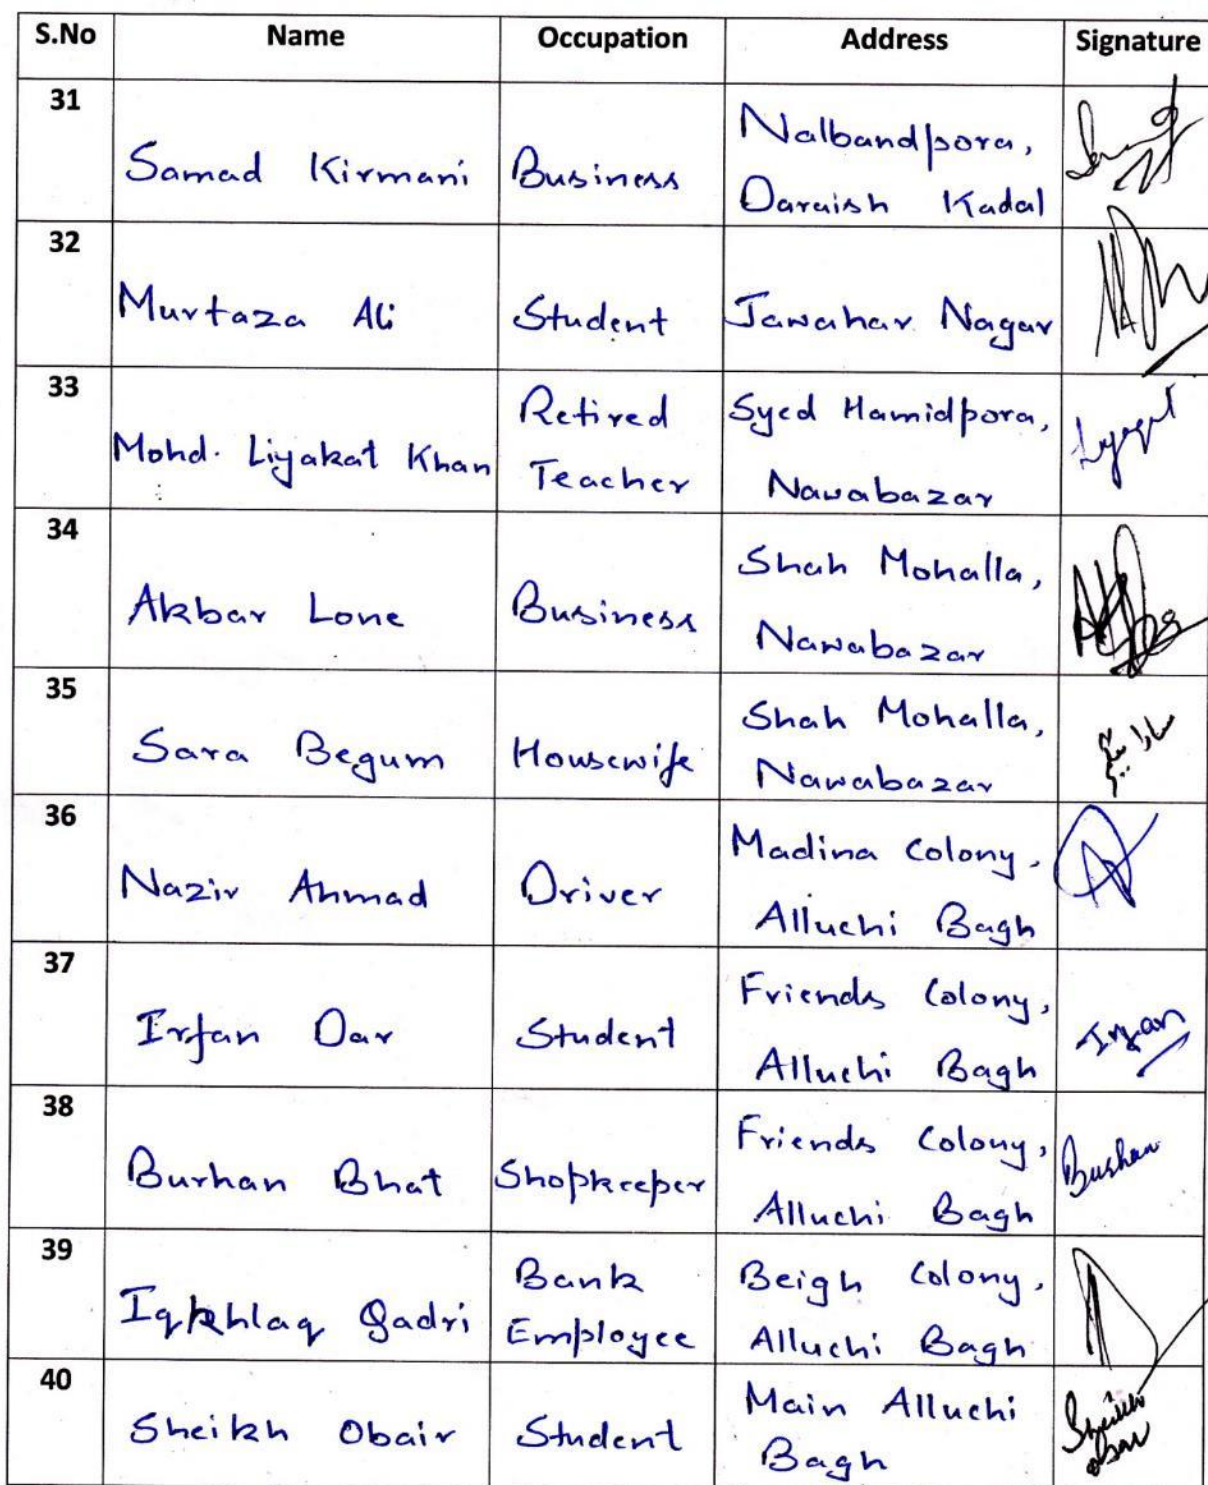 S.No Name Occupation Address Signature
31
Samad Kirmani Business Nalbandpora,
Daraish Kadal
32
Murtaza Ali Student Jawahar Nagar
33
Mohd. Liyakat Khan Retired Teacher Syed Hamidpora,
Nawabazar
34
Akbar Lone Business Shah Mohalla,
Nawabazar
35
Sara Begum Housewife Shah Mohalla,
Nawabazar
سارا بیگم
36
Nazir Ahmad Driver Madina Colony,
Alluchi Bagh
37
Irfan Dar Student Friends Colony,
Alluchi Bagh
Irfan
38
Burhan Bhat Shopkeeper Friends Colony,
Alluchi Bagh
Burhan
39
Iqkhlaq Qadri Bank Employee Beigh Colony,
Alluchi Bagh
40
Sheikh Obair Student Main Alluchi
Bagh
Sheikh